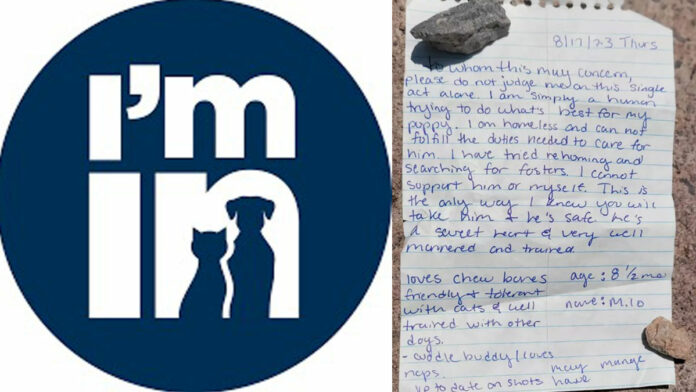 I'm
in
8/17/23 Thurs
To whom this may concern,
please do not judge me on this single
act alone. I am simply a human
trying to do what's best for my
puppy. I am homeless and can not
fulfill the duties needed to care for
him. I have tried rehoming and
searching for fosters. I cannot
support him or myself. This is
the only way I knew you will
take him & he's safe he's
a sweet heart & very well
mannered and trained
loves chew bones age: 8 1/2 mo
friendly & tolerant
with cats & well name: Milo
trained with other
dogs.
- cuddle buddy/loves
naps. may mange
up to date on shots have